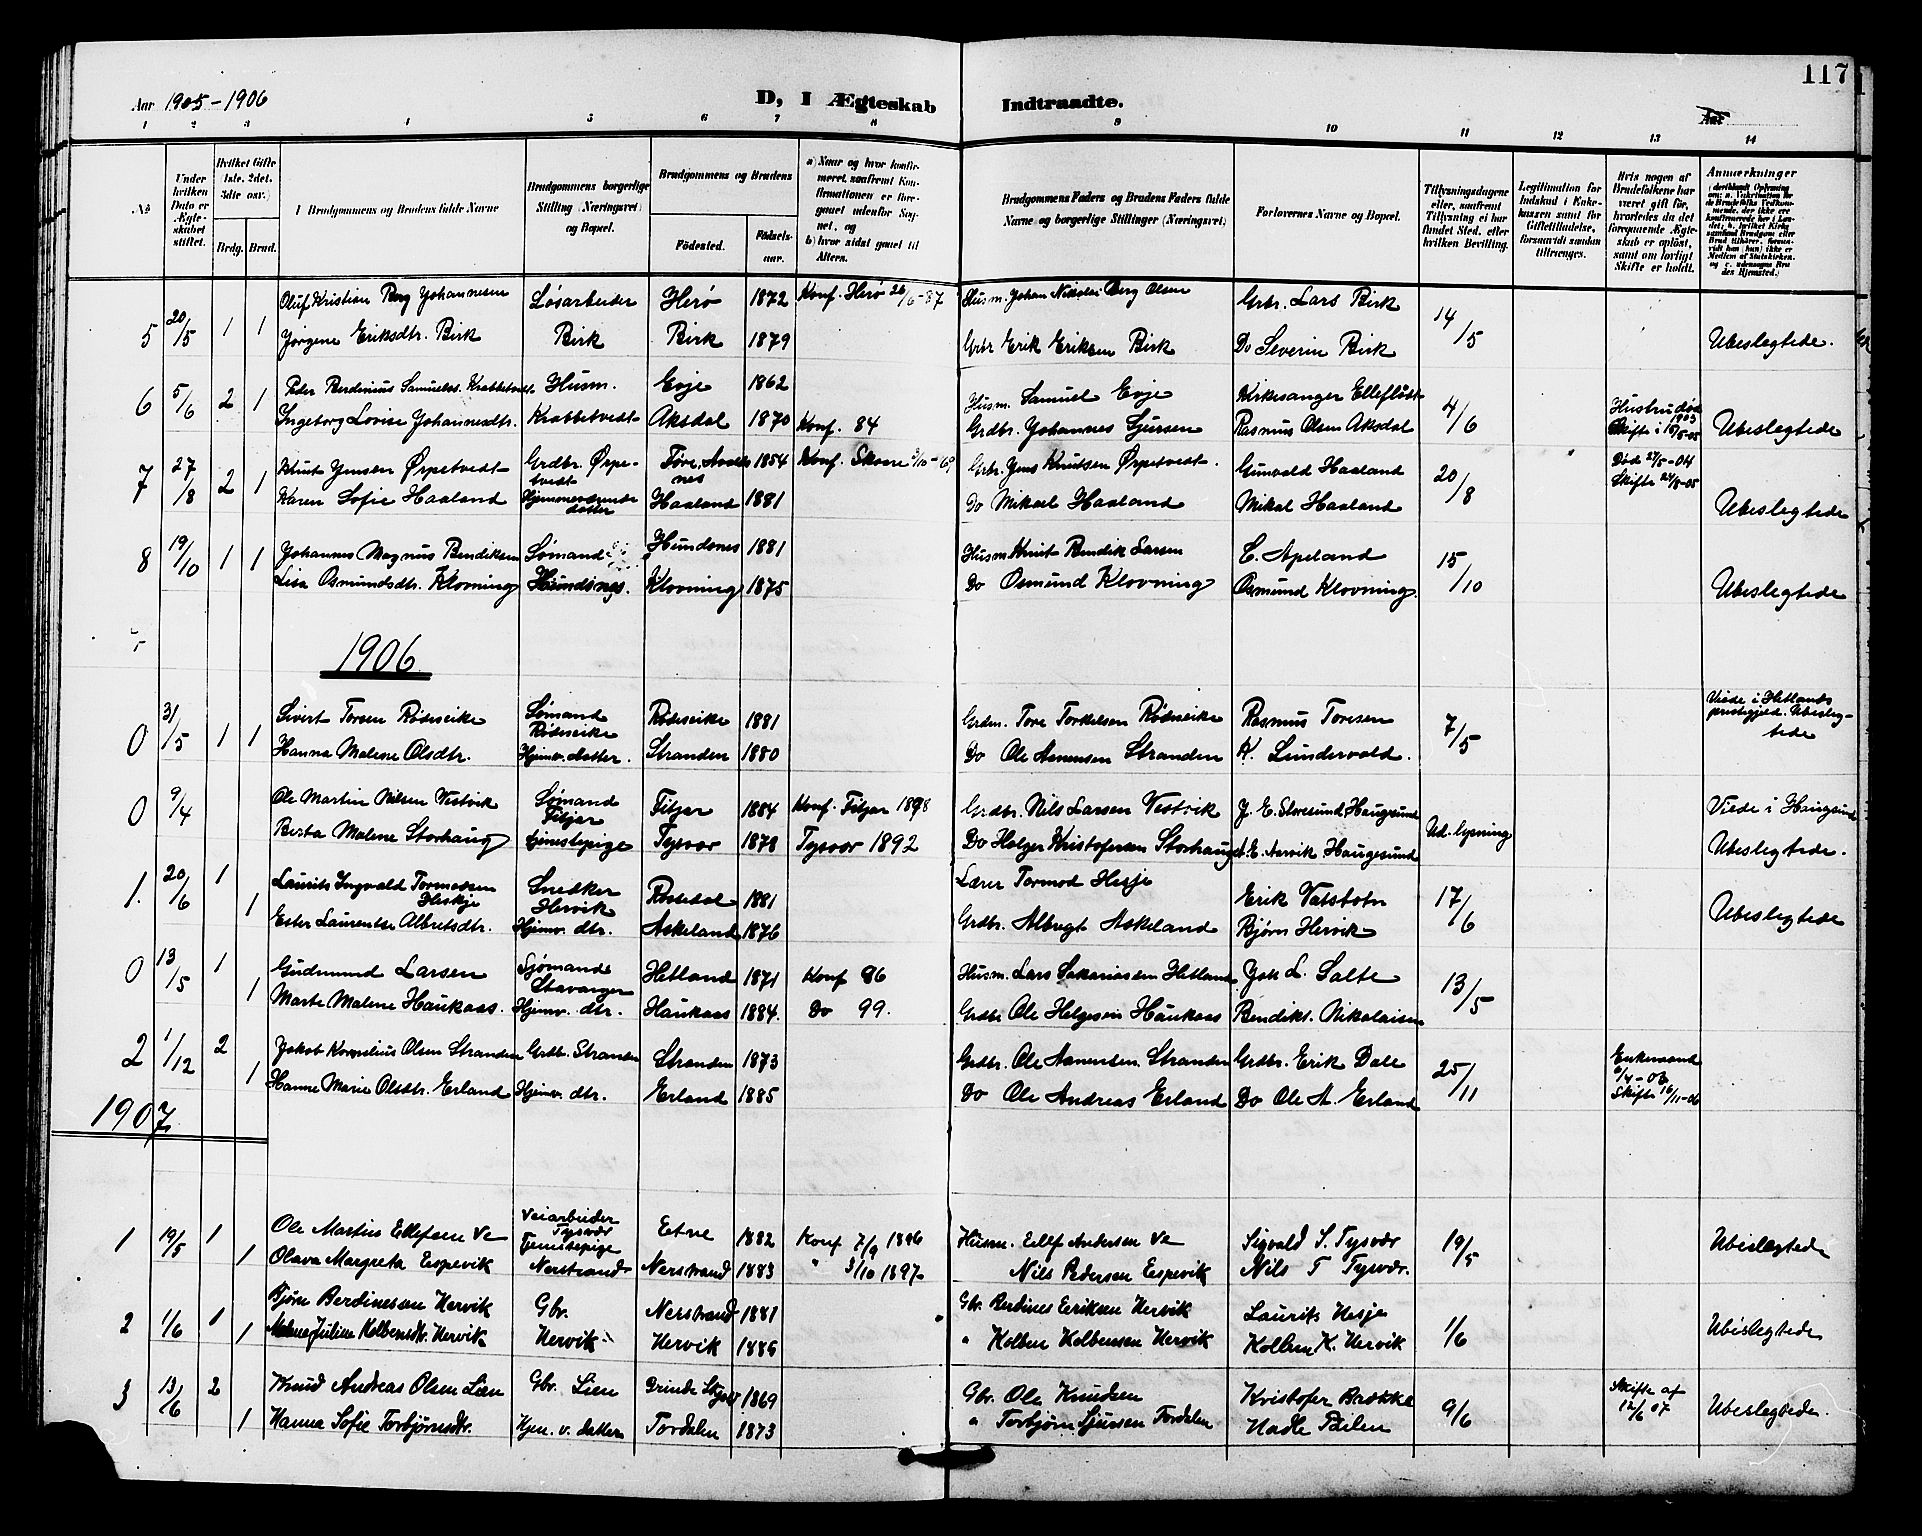 117
Aar 1905-1906
D, I Ægteskab Indtraadte.
Aar
1 2 3 4 5 6 7 8 9 10 11 12 13 14
No
Under hvilken Dato er Ægteskabet stiftet.
Hvilket Gifte 1ste, 2det, 3die osv.)
Brdg. Brud.
Brudgommens og Brudens fulde Navne
Brudgommens borgerlige Stilling (Næringsvei) og Bopæl.
Brudgommens og Brudens
Fødested.
Fødselsaar.
a) Naar og hvor konfirmeret, saafremt Konfirmationen er foregaaet udenfor Sognet, og
b) hvor sidst gaaet til Alters.
Brudgommens Faders og Brudens Faders fulde Navne og borgerlige Stillinger (Næringsvei)
Forlovernes Navne og Bopæl.
Tillysningsdagene eller, saafremt Tillysning ei har fundet Sted, efter hvilken Bevilling.
Legitimation for Indskud i Enkekassen samt for Giftetilladelse, forsaavidt saadan tiltrænges.
Hvis nogen af Brudefolkene har været gift før, hvorledes da det foregaaende Ægteskab er opløst, samt om lovligt Skifte er holdt.
Anmærkninger
5 20/5 1 1 Oluf Kristian Berg Johannesen Løsarbeider Herø 1872 Konf. Herø 26/6-87 Husm. Johan Nikolai Berg Olsen Grbr. Lars Birk 14/5
Jørgene Eriksdtr. Birk Birk Birk 1879 Grbr Erik Eriksen Birk Do Severin Birk Ubeslegtede.
6 5/6 2 1 Peder Berdinius Samuelss. Krabbetvedt Husm. Evje 1862 Husm. Samuel Evje Kirkesanger Elleflødt 4/6 Hustru død 1903
Ingeborg Lovise Johannesdtr. Krabbetvedt Aksdal 1870 Konf. 84 Grdbr. Johannes Sjursen Rasmus Olsen Aksdal Skifte i 16/5-05 Ubeslegtede
7 27/8 2 1 Knut Jensen Ørpetvedt Grdbr. Ørpetvedt 1854 Konf. Skaare Grbr. Jens Knutsen Ørpetvedt. Gunvald Haaland 20/8 Død 27/5-04
Karen Sofie Haaland Hjemmeværende datter Haaland 1881 Do Mikael Haaland Mikal Haaland Skifte 24/8-05 Ubeslegtede
8 19/10 1 1 Johannes Magnus Bendiksen Sømand Hundsnes 1881 Husm Knut Bendik Larsen C. Apeland 15/10
Lisa Osmundsdtr. Klovning Hundsnes. Klovning 1875 Do Osmund Klovning Osmund Klovning. Ubeslegtede
1906
0 31/5 1 1 Sivert Torsen Rødseike Sømand Rødseike Rødseike 1881 Grdm. Tore Torkelsen Rødseike Rasmus Toresen 7/5 Viede i Hetlands prestegjeld. Ubeslegtede
Hanna Malene Olsdtr. Hjemv. datter. Stranden 1880 Do Ole Aanensen Stranden K. Lundervold.
0 9/4 Ole Martin Nilsen Vestvik Sømand Fitjar Fitjar 1884 Konf. Fitjar 1898 Grdbr. Nils Larsen Vestvik J. E. Storesund Haugesund Ud. lysning Viede i Haugesund
Berta Malene Storhaug tjenestepige Tysvær 1878 Tysvær 1892 Do Holger Kristofersen Storhaug A. E. Aarvik Haugesund Ubeslegtede.
1. 20/6 1 1 Laurits Ingvald Tormodsen Heskje Snedker Hervik 1881 Lærer Tormod Hesje Erik Vatsbotn 17/6
Ester Laurentse Albretsdtr. Hjemv. dtr. Askeland 1876 Grdbr. Albregt Askeland Bjørn Hervik Ubeslegtede
0 13/5 1 1 Gudmund Larsen Sjømand Stavanger Hetland 1871 Konf 86 Husm. Lars Sakariassen Hetland Joh L. Salte 13/5
Marte Malene Haukaas. Hjemv. dtr. Haukaas 1884. Do 99. Grdbr Ole Helgesen Haukaas Bendikt. Nikolaisen
2 1/12 2 1 Jakob Kornelius Olsen Stranden Grdb. Stranden Stranden 1873 Grdbr. Ole Aanensen Stranden Grdbr. Erik Dale 25/11 Enkemand 6/4-06
Hanne Marie Olsdtr. Erland Hjemv. dtr. Erland 1885 Do Ole Andreas Erland Do Ole A. Erland Skifte 16/11-06
1907
1 19/5 1 1 Ole Martin Ellefsen Ve Veiarbeider Tysvær Etne 1882 Konf 7/9 1896 Husm. Ellef Andersen Ve Sigvald S. Tysvær 19/5
Olava Margreta Espevik Tjenestepige Nerstrand Nerstrand 1883 " 3/10 1897 Nils Pedersen Espevik Nils T Tysvær. Ubeslegtede
2 1/6 1 1 Bjørn Berdinesen Hervik Gbr. Nerstrand 1881 Gbr. Berdines Eeriksen Hervik Laurits Hesje 1/6
Malene Juline Kolbensdtr. Hervik Hervik Hervik 1886 " Kolben Kolbensen Hervik Kolben K. Hervik Ubeslegtede
3 13/6 2 1 Knud Andreas Olsen Lien Gbr. Lien Grinde Skjold 1869 Gbr. Ole Knudsen Kristofer Brekke 9/6 Skifte af 12/6 07
Hanna Sofie Torbjørnsdtr. Hjem. v. datter Tordalen 1873 " Torbjørn Sjursen Tordalen Ubeslegtede.